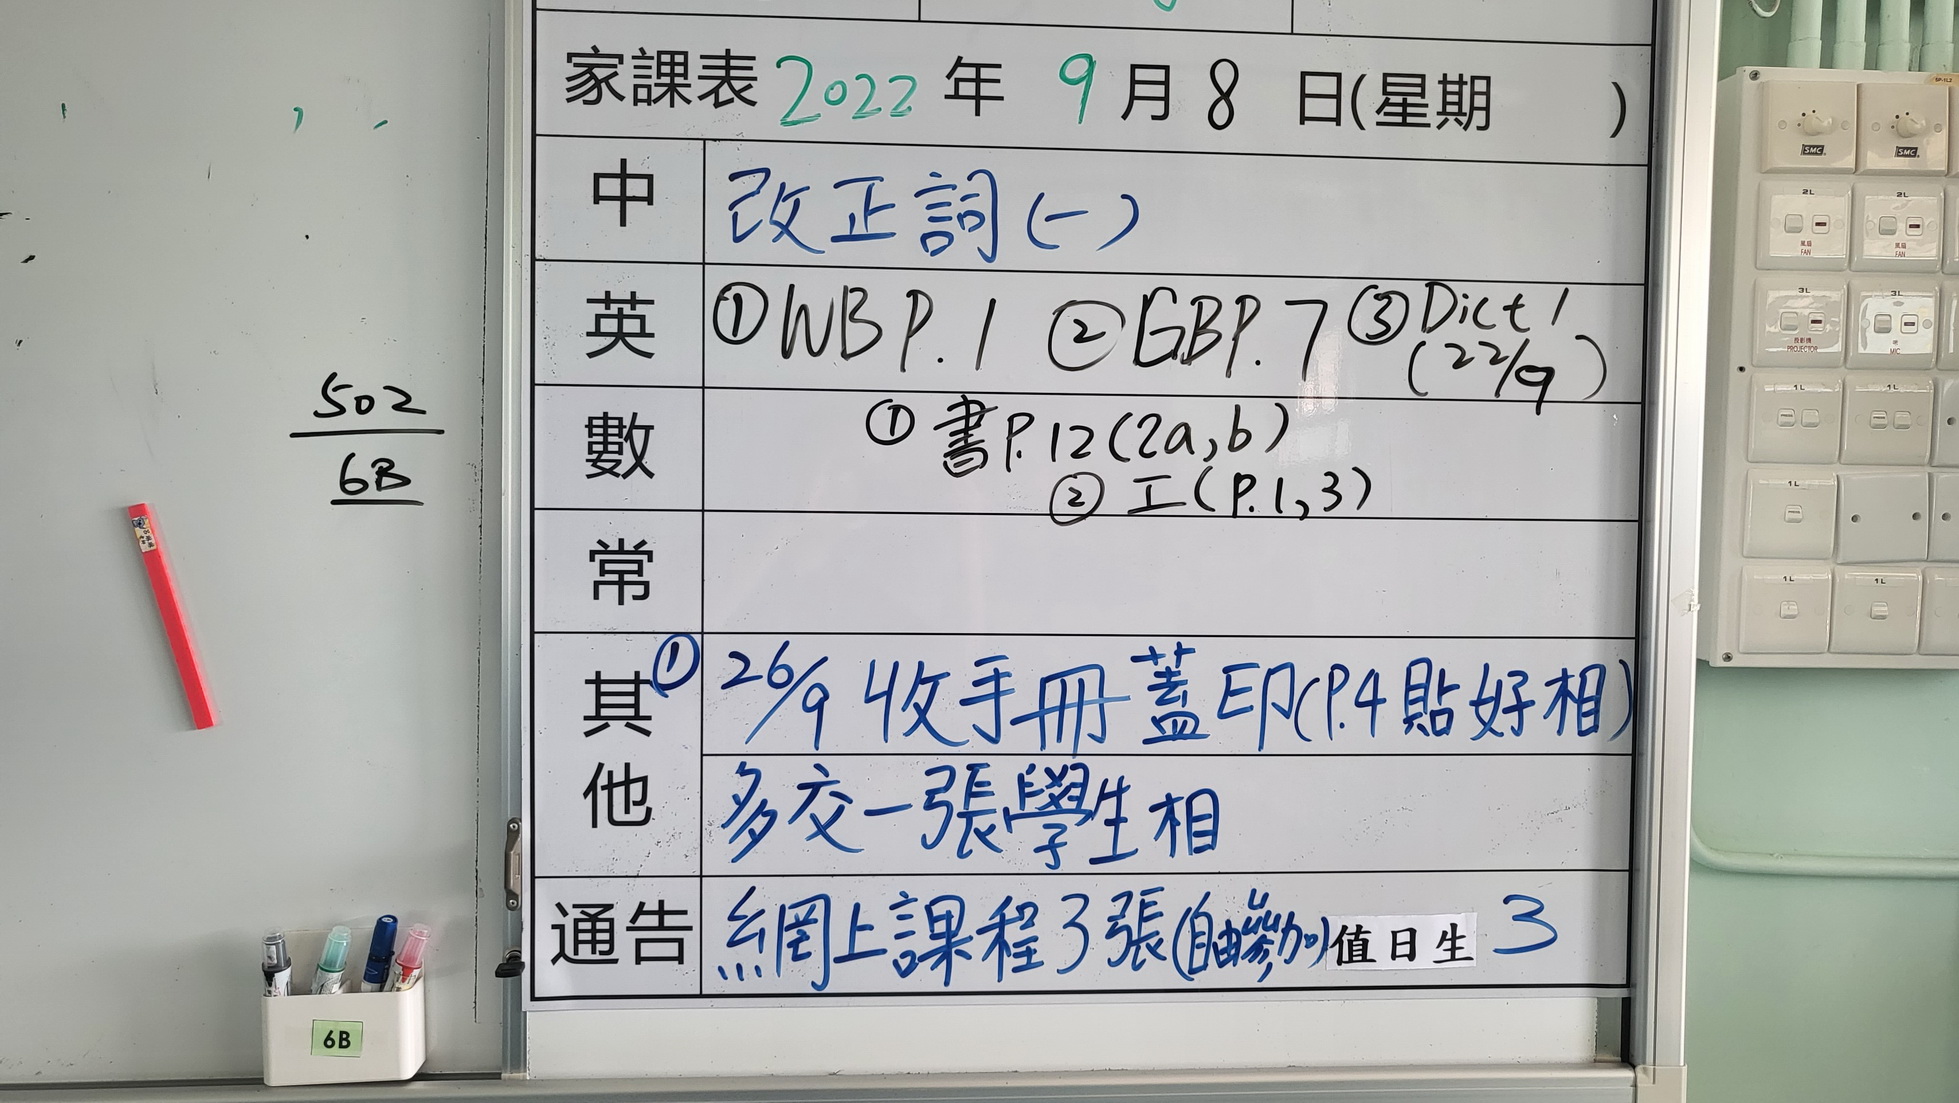 家課表 2022 年 9 月 8 日(星期 )
中 改正詞(一)
英 ①WB P.1 ②GB P.7 ③Dict 1
(22/9)
數 ①書P.12(2a,b)
②工(P.1,3)
常
其他 ①26/9 收手冊蓋印(P.4貼好相)
多交一張學生相
通告 網上課程3張(自由參加) 值日生 3
502
6B
6B
SMC
SMC
2L
2L
風扇
FAN
風扇
FAN
3L
3L
投影機
PROJECTOR
咪
MIC
1L
1L
1L
1L
1L